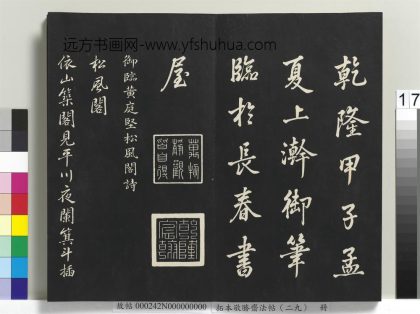 远方书画网-www.yfshuhua.com
乾隆甲子孟
夏上澣御筆
臨於長春書
屋
萬物
靜觀
皆自得
乾隆
宸翰
御臨黃庭堅松風閣詩
松風閣
依山築閣見平川夜闌箕斗插
17
故帖 000242N000000000
拓本敬勝齋法帖（二九） 冊